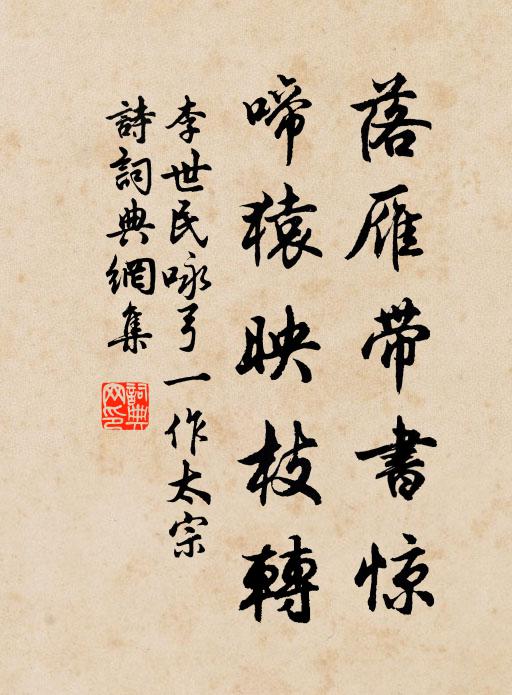 落雁带書惊
啼猿映枝轉
李世民咏弓一作太宗
詩詞典網集
詞典网印